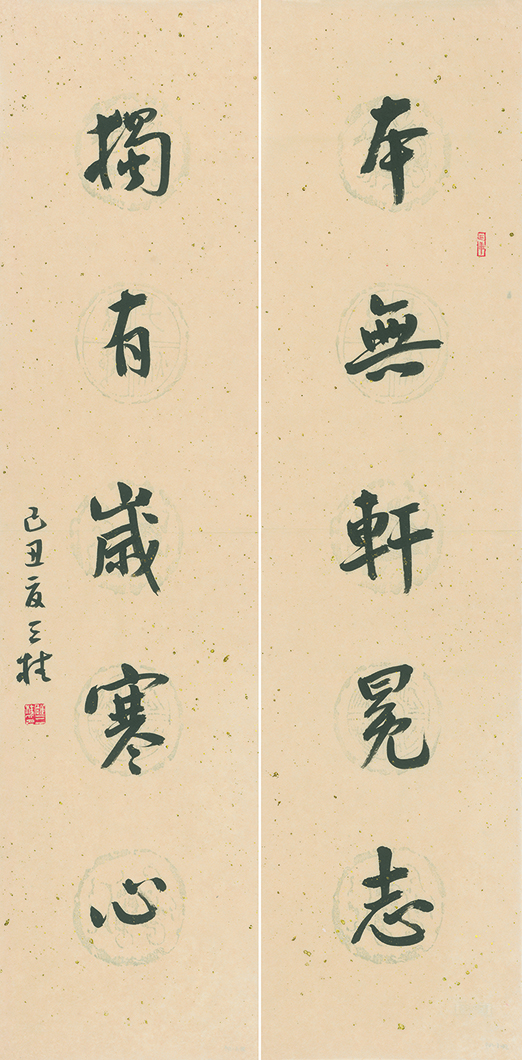 本無軒冕志
獨有歲寒心
己丑夏